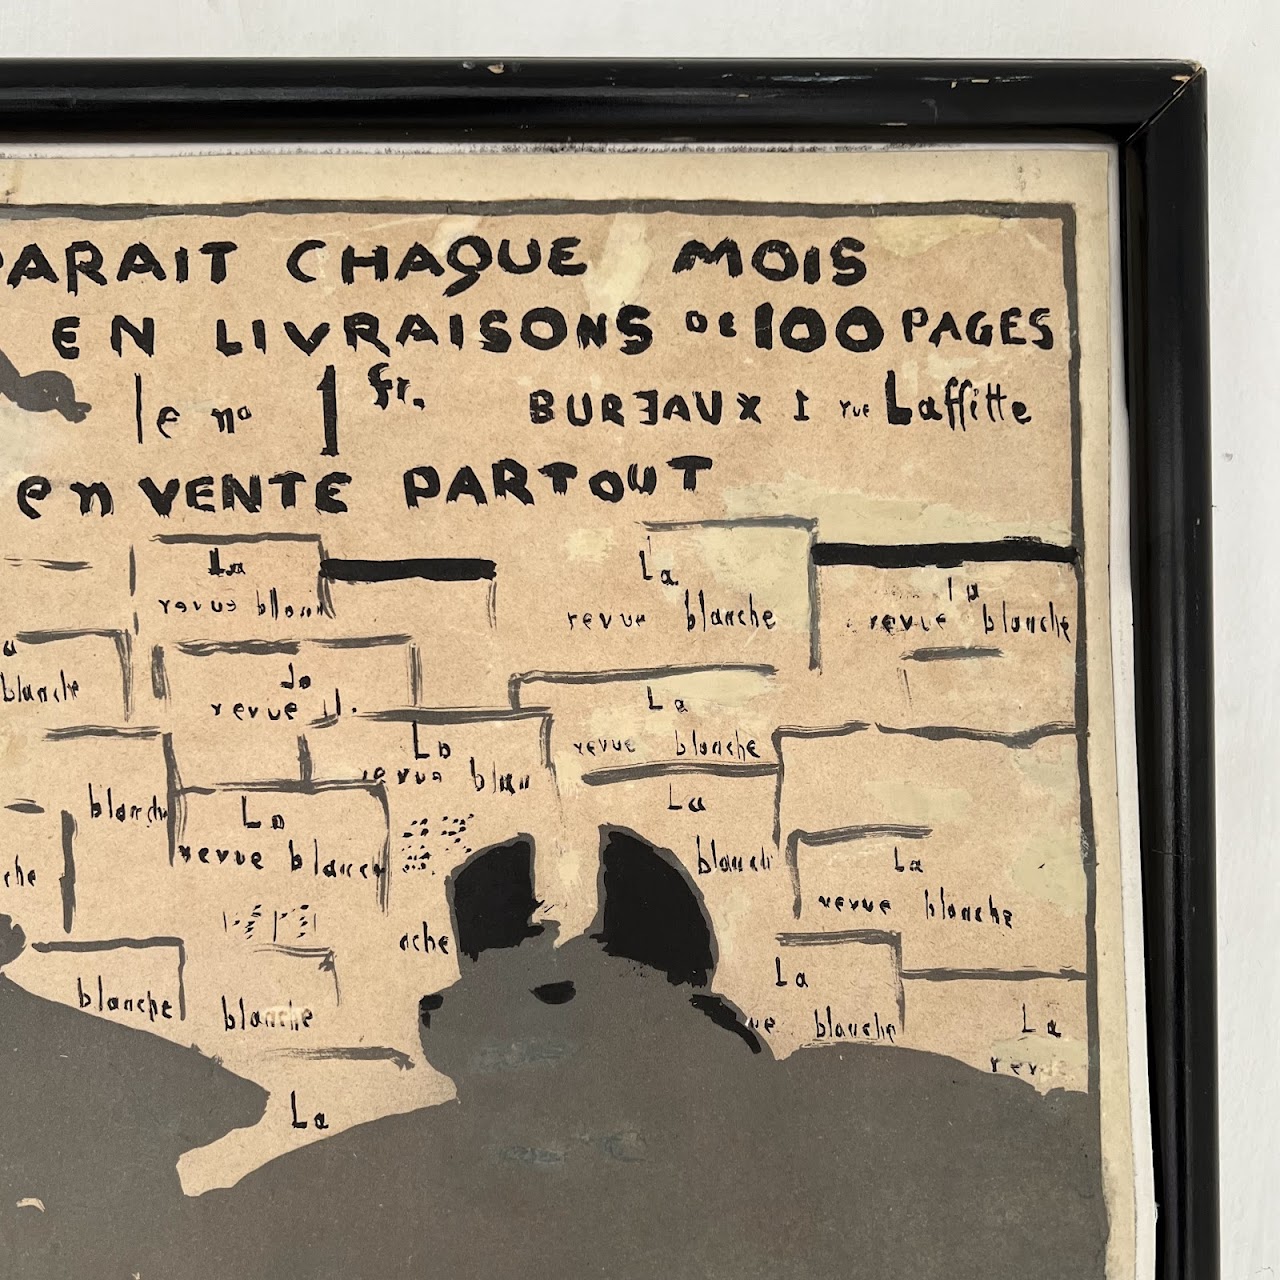 PARAIT CHAQUE MOIS
EN LIVRAISONS DE 100 PAGES
le no 1 fr. BUREAUX 1 rue Laffitte
en VENTE PARTOUT
La
revue
La
revue blanche
la
revue blanche
blanche
revue
La
revue blanche
La
blanche
La
revue
La
La
revue blanche
ache
blanche
La
blanche
blanche
La
La
revue